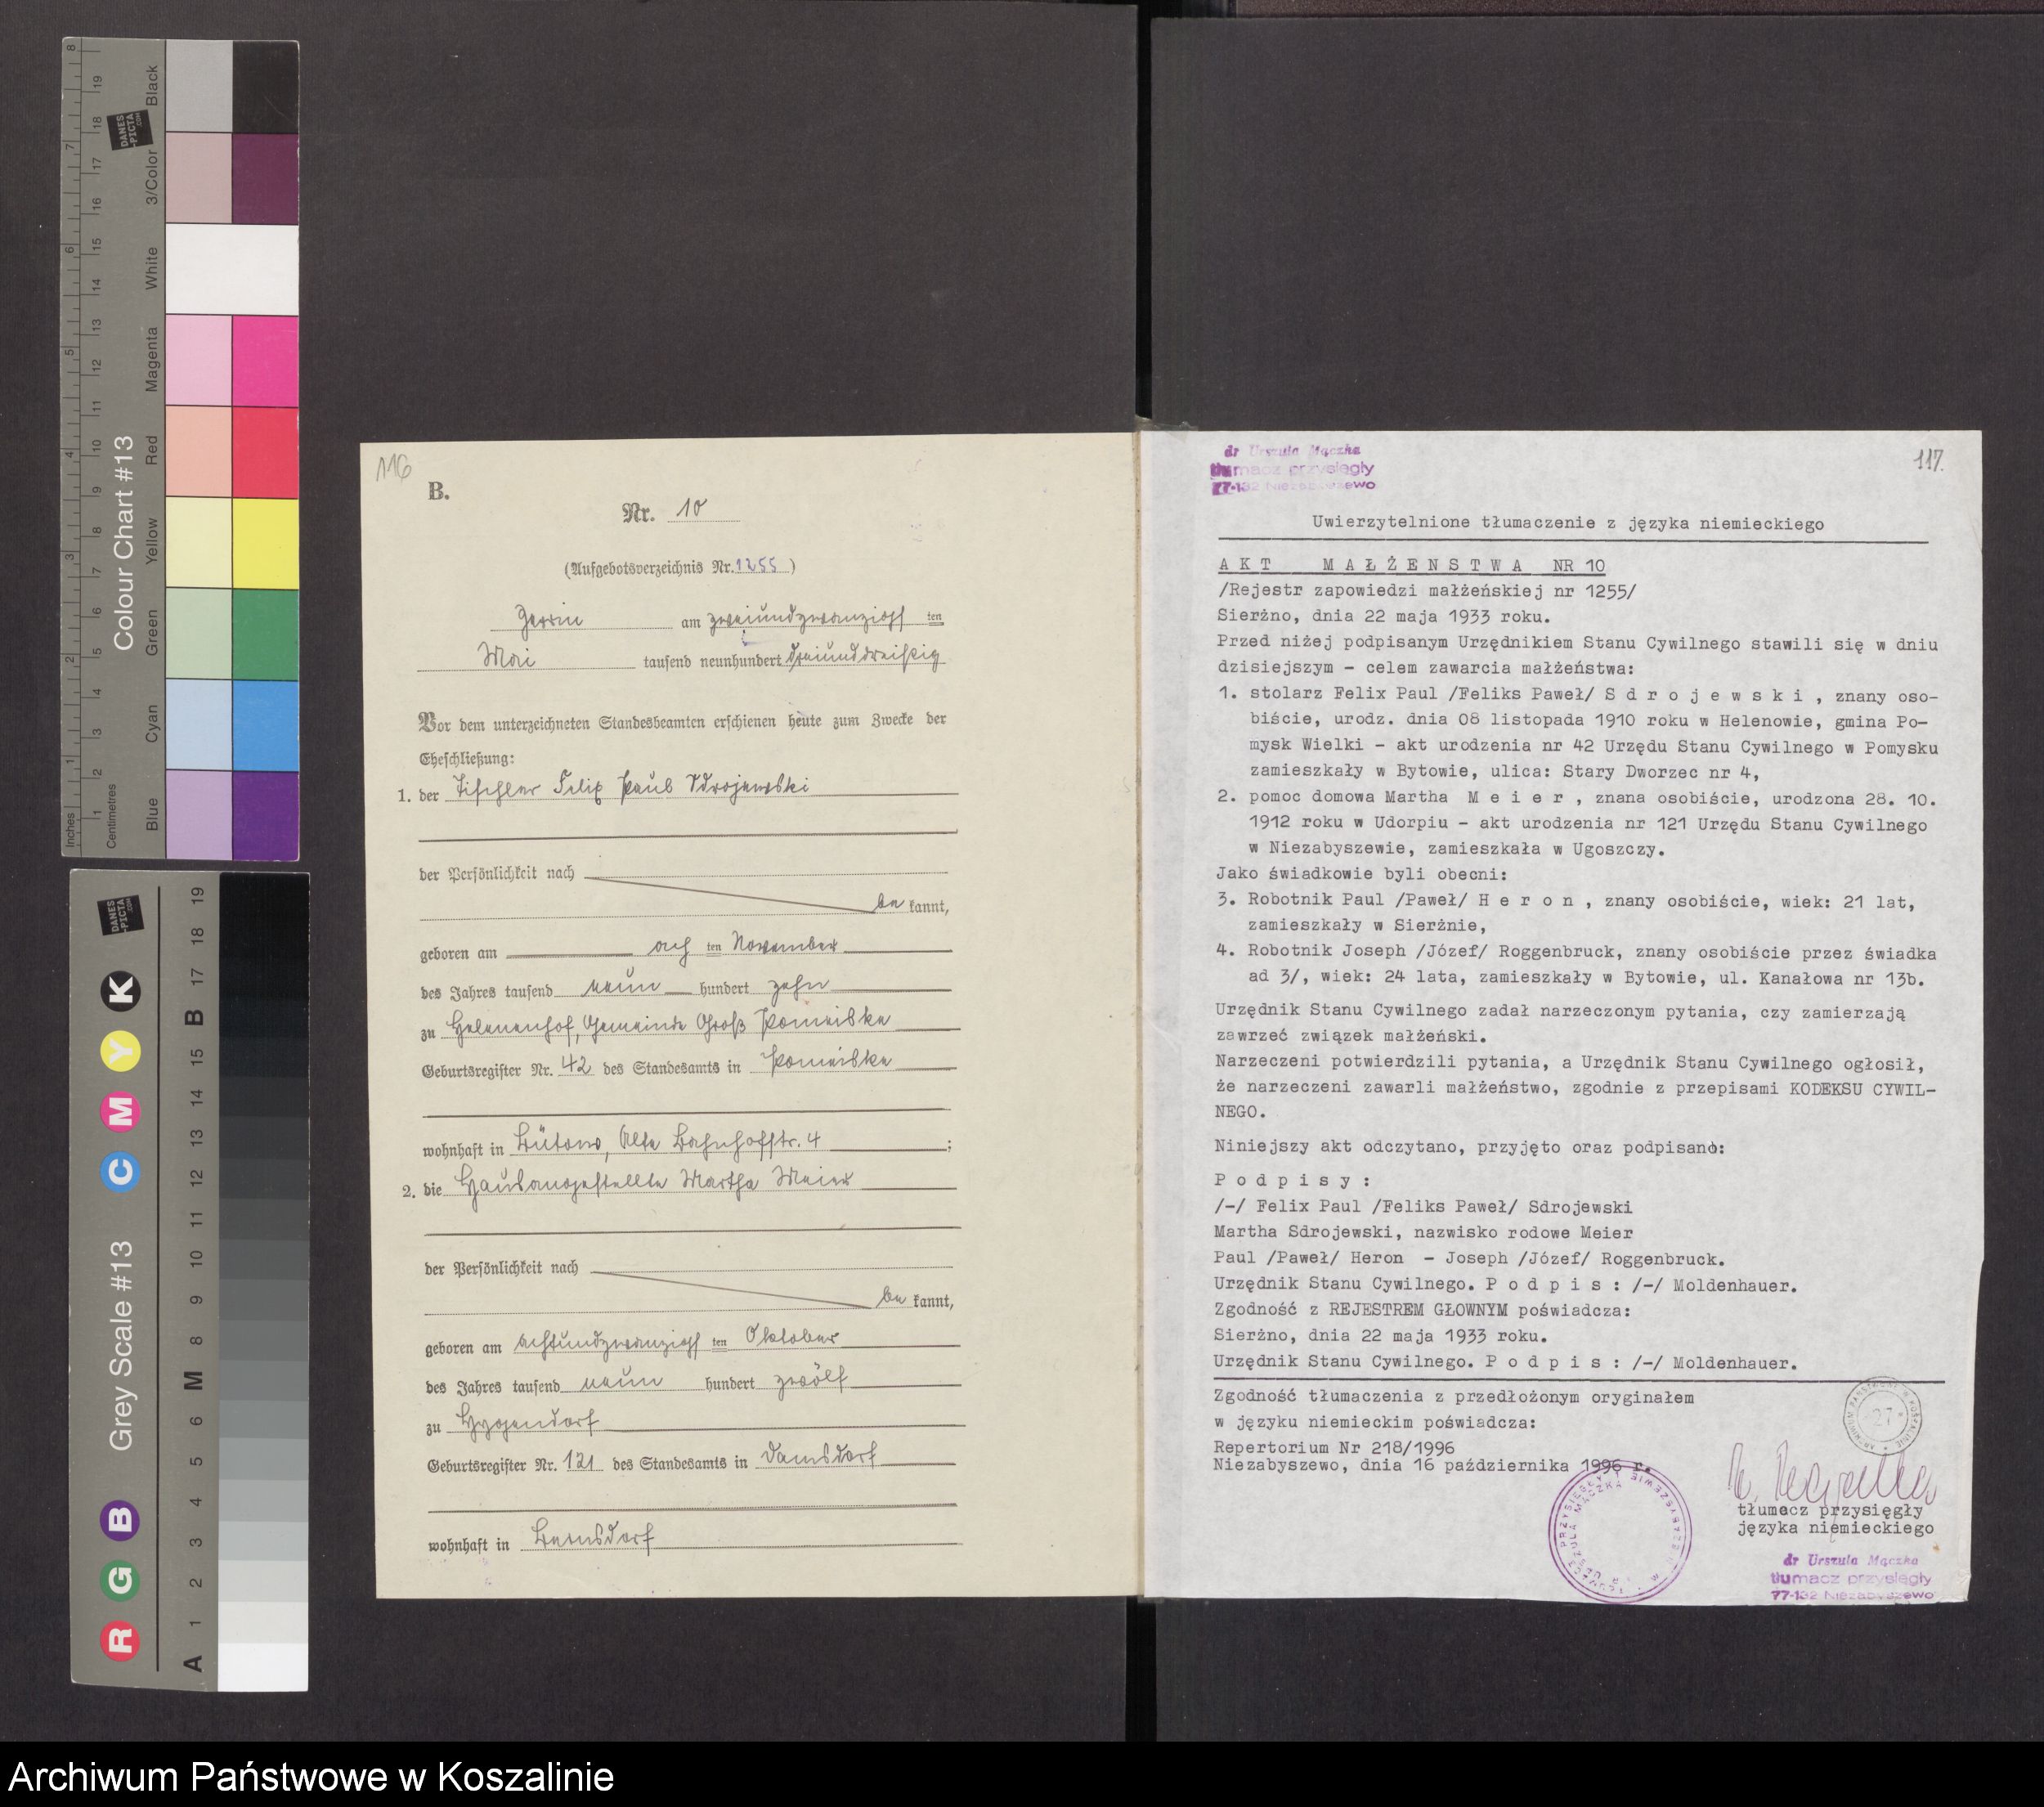 116
B.
Nr. 10
(Aufgebotsverzeichnis Nr. 1255)
Zerrin am zweiundzwanzigsten
Mai tausend neunhundert dreiunddreißig
Vor dem unterzeichneten Standesbeamten erschienen heute zum Zwecke der
Eheschließung:
1. der Tischler Felix Paul Sdrojewski
der Persönlichkeit nach
be kannt,
geboren am achten November
des Jahres tausend neun hundert zehn
zu Helenenhof, Gemeinde Groß Pomeiske
Geburtsregister Nr. 42 des Standesamts in Pomeiske
wohnhaft in Bütow, Alte Bahnhofstr. 4;
2. die Hausangestellte Martha Meier
der Persönlichkeit nach
be kannt,
geboren am achtundzwanzigsten Oktober
des Jahres tausend neun hundert zwölf
zu Hygendorf
Geburtsregister Nr. 121 des Standesamts in Damsdorf
wohnhaft in Bernsdorf
dr Urszula Mączka
tłumacz przysięgły
77-132 Niezabyszewo
117.
Uwierzytelnione tłumaczenie z języka niemieckiego
A K T M A Ł Ż E N S T W A NR 10
/Rejestr zapowiedzi małżeńskiej nr 1255/
Sierżno, dnia 22 maja 1933 roku.
Przed niżej podpisanym Urzędnikiem Stanu Cywilnego stawili się w dniu
dzisiejszym - celem zawarcia małżeństwa:
1. stolarz Felix Paul /Feliks Paweł/ S d r o j e w s k i , znany oso-
biście, urodz. dnia 08 listopada 1910 roku w Helenowie, gmina Po-
mysk Wielki - akt urodzenia nr 42 Urzędu Stanu Cywilnego w Pomysku
zamieszkały w Bytowie, ulica: Stary Dworzec nr 4,
2. pomoc domowa Martha M e i e r , znana osobiście, urodzona 28. 10.
1912 roku w Udorpiu - akt urodzenia nr 121 Urzędu Stanu Cywilnego
w Niezabyszewie, zamieszkała w Ugoszczy.
Jako świadkowie byli obecni:
3. Robotnik Paul /Paweł/ H e r o n , znany osobiście, wiek: 21 lat,
zamieszkały w Sierżnie,
4. Robotnik Joseph /Józef/ Roggenbruck, znany osobiście przez świadka
ad 3/, wiek: 24 lata, zamieszkały w Bytowie, ul. Kanałowa nr 13b.
Urzędnik Stanu Cywilnego zadał narzeczonym pytania, czy zamierzają
zawrzeć związek małżeński.
Narzeczeni potwierdzili pytania, a Urzędnik Stanu Cywilnego ogłosił,
że narzeczeni zawarli małżeństwo, zgodnie z przepisami KODEKSU CYWIL-
NEGO.
Niniejszy akt odczytano, przyjęto oraz podpisano:
P o d p i s y :
/-/ Felix Paul /Feliks Paweł/ Sdrojewski
Martha Sdrojewski, nazwisko rodowe Meier
Paul /Paweł/ Heron - Joseph /Józef/ Roggenbruck.
Urzędnik Stanu Cywilnego. P o d p i s : /-/ Moldenhauer.
Zgodność z REJESTREM GŁOWNYM poświadcza:
Sierżno, dnia 22 maja 1933 roku.
Urzędnik Stanu Cywilnego. P o d p i s : /-/ Moldenhauer.
Zgodność tłumaczenia z przedłożonym oryginałem
w języku niemieckim poświadcza:
Repertorium Nr 218/1996
Niezabyszewo, dnia 16 października 1996 r.
27
tłumacz przysięgły
języka niemieckiego
dr Urszula Mączka
tłumacz przysięgły
77-132 Niezabyszewo
Colour Chart #13
Inches
Centimetres
Blue Cyan Green Yellow Red Magenta White 3/Color Black
DANES-PICTA.COM
Grey Scale #13
R G B C M Y K
A 1 2 3 4 5 6 M 8 9 10 11 12 13 14 15 B 17 18 19
DANES-PICTA.COM
Archiwum Państwowe w Koszalinie